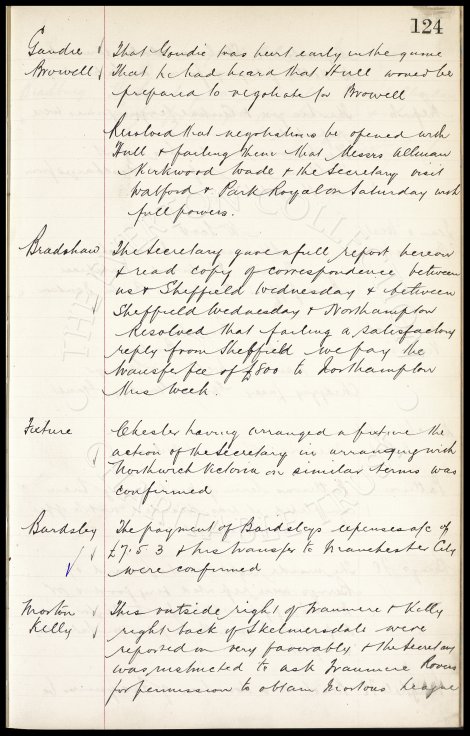 124
Goudie That Goudie was hurt early in the game
Browell That he had heard that Hull would be
prepared to negotiate for Browell
Resolved that negotiations be opened with
Hull & failing them that Messrs Allman
Kirkwood Wade & the Secretary visit
Watford & Park Royal on Saturday with
full powers.
Bradshaw The Secretary gave a full report hereon
& read copy of correspondence between
us & Sheffield Wednesday & between
Sheffield Wednesday & Northampton
Resolved that failing a satisfactory
reply from Sheffield we pay the
transfer fee of £800 to Northampton
this week.
Fixture Chester having arranged a fixture the
action of the Secretary in arranging with
Northwich Victoria on similar terms was
confirmed
Bardsley The payment of Bardsleys expenses a/c of
£7.5.3 & his transfer to Manchester City
were confirmed
Morton This outside right of Tranmere & Kelly
Kelly right back of Skelmersdale were
reported on very favorably & the Secretary
was instructed to ask Tranmere Rovers
for permission to obtain Mortons League